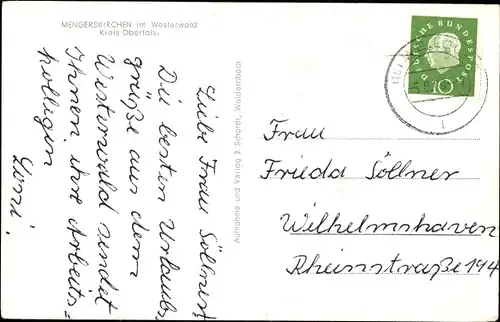 MENGERSKIRCHEN im Westerwald
Kreis Oberlahn
Liebe Frau Söllner!
Die besten Urlaubs
grüße aus dem
Westerwald sendet
Ihnen ihre Arbeits=
kollegin
Loni!
Aufnahme und Verlag J. Schardt,
DEUTSCHE BUNDESPOST
10
Frau
Frieda Söllner
Wilhelmshaven
Rheinstraße 194